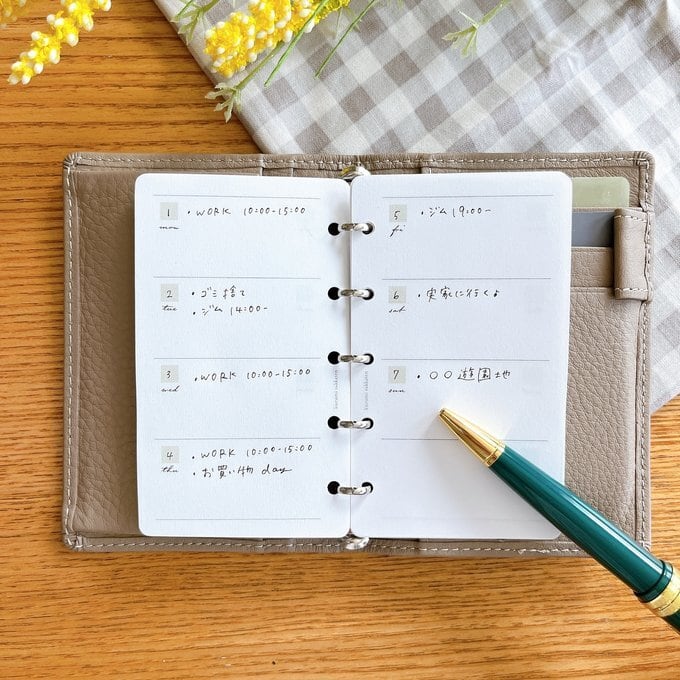 1 ・WORK 10:00-15:00
mon
2 ・ゴミ捨て
tue ・ジム 14:00-
3 ・WORK 10:00-15:00
wed
4 ・WORK 10:00-15:00
thu ・お買い物 day
5 ・ジム 19:00-
fri
6 ・実家に行く♪
sat
7 ・○○遊園地
sun